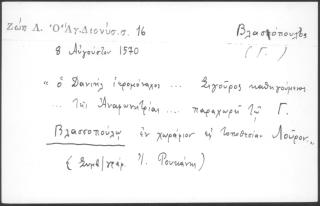 Ζώη Λ. Ὁ Ἅγ. Διονύσ. σ. 16
Βλασσόπουλος
(Γ.)
8 Αὐγούστου 1570
"ὁ Δανιὴλ ἱερομόναχος ... Σιγοῦρος καθηγούμενος
... τῆς Ἀναφωνητρίας ... παραχωρεῖ τῷ Γ.
Βλασσοπούλῳ ἐν χωράφιον εἰς τοποθεσίαν Λοῦρον"
(Συμβ/γράφ. Ἰ. Ρουκάνη)